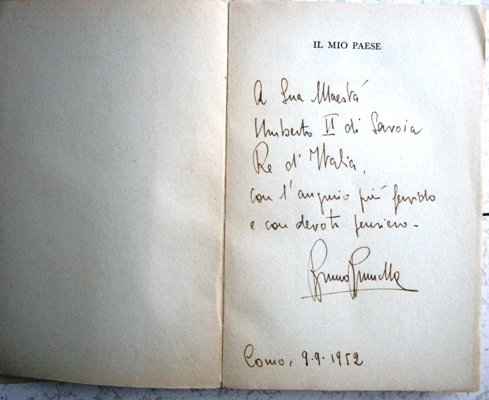 IL MIO PAESE
A Sua Maestà
Umberto II di Savoia
Re d'Italia,
con l'augurio più fervido
e con devoto pensiero.
Bruno
Como, 9.9.1952